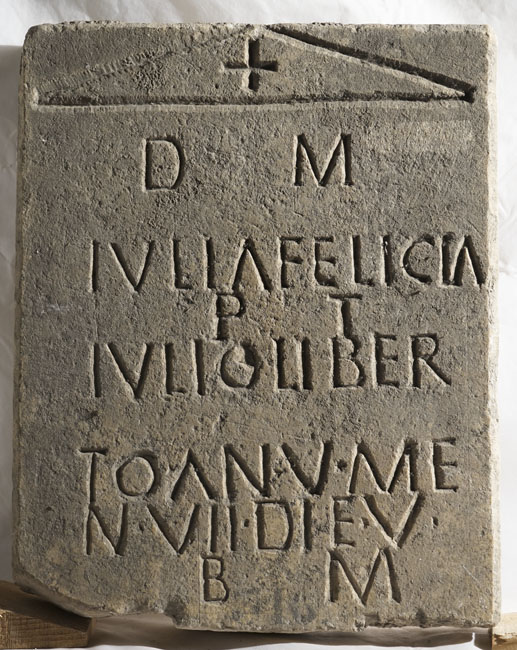 D M
IVLIAFELICIA
P T
IVLIOLIBER
TO·AN·V·ME
N·VII·DIE·V·
B M